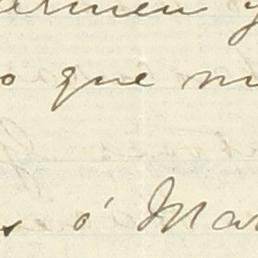 armen y
o que m
s ó Mar